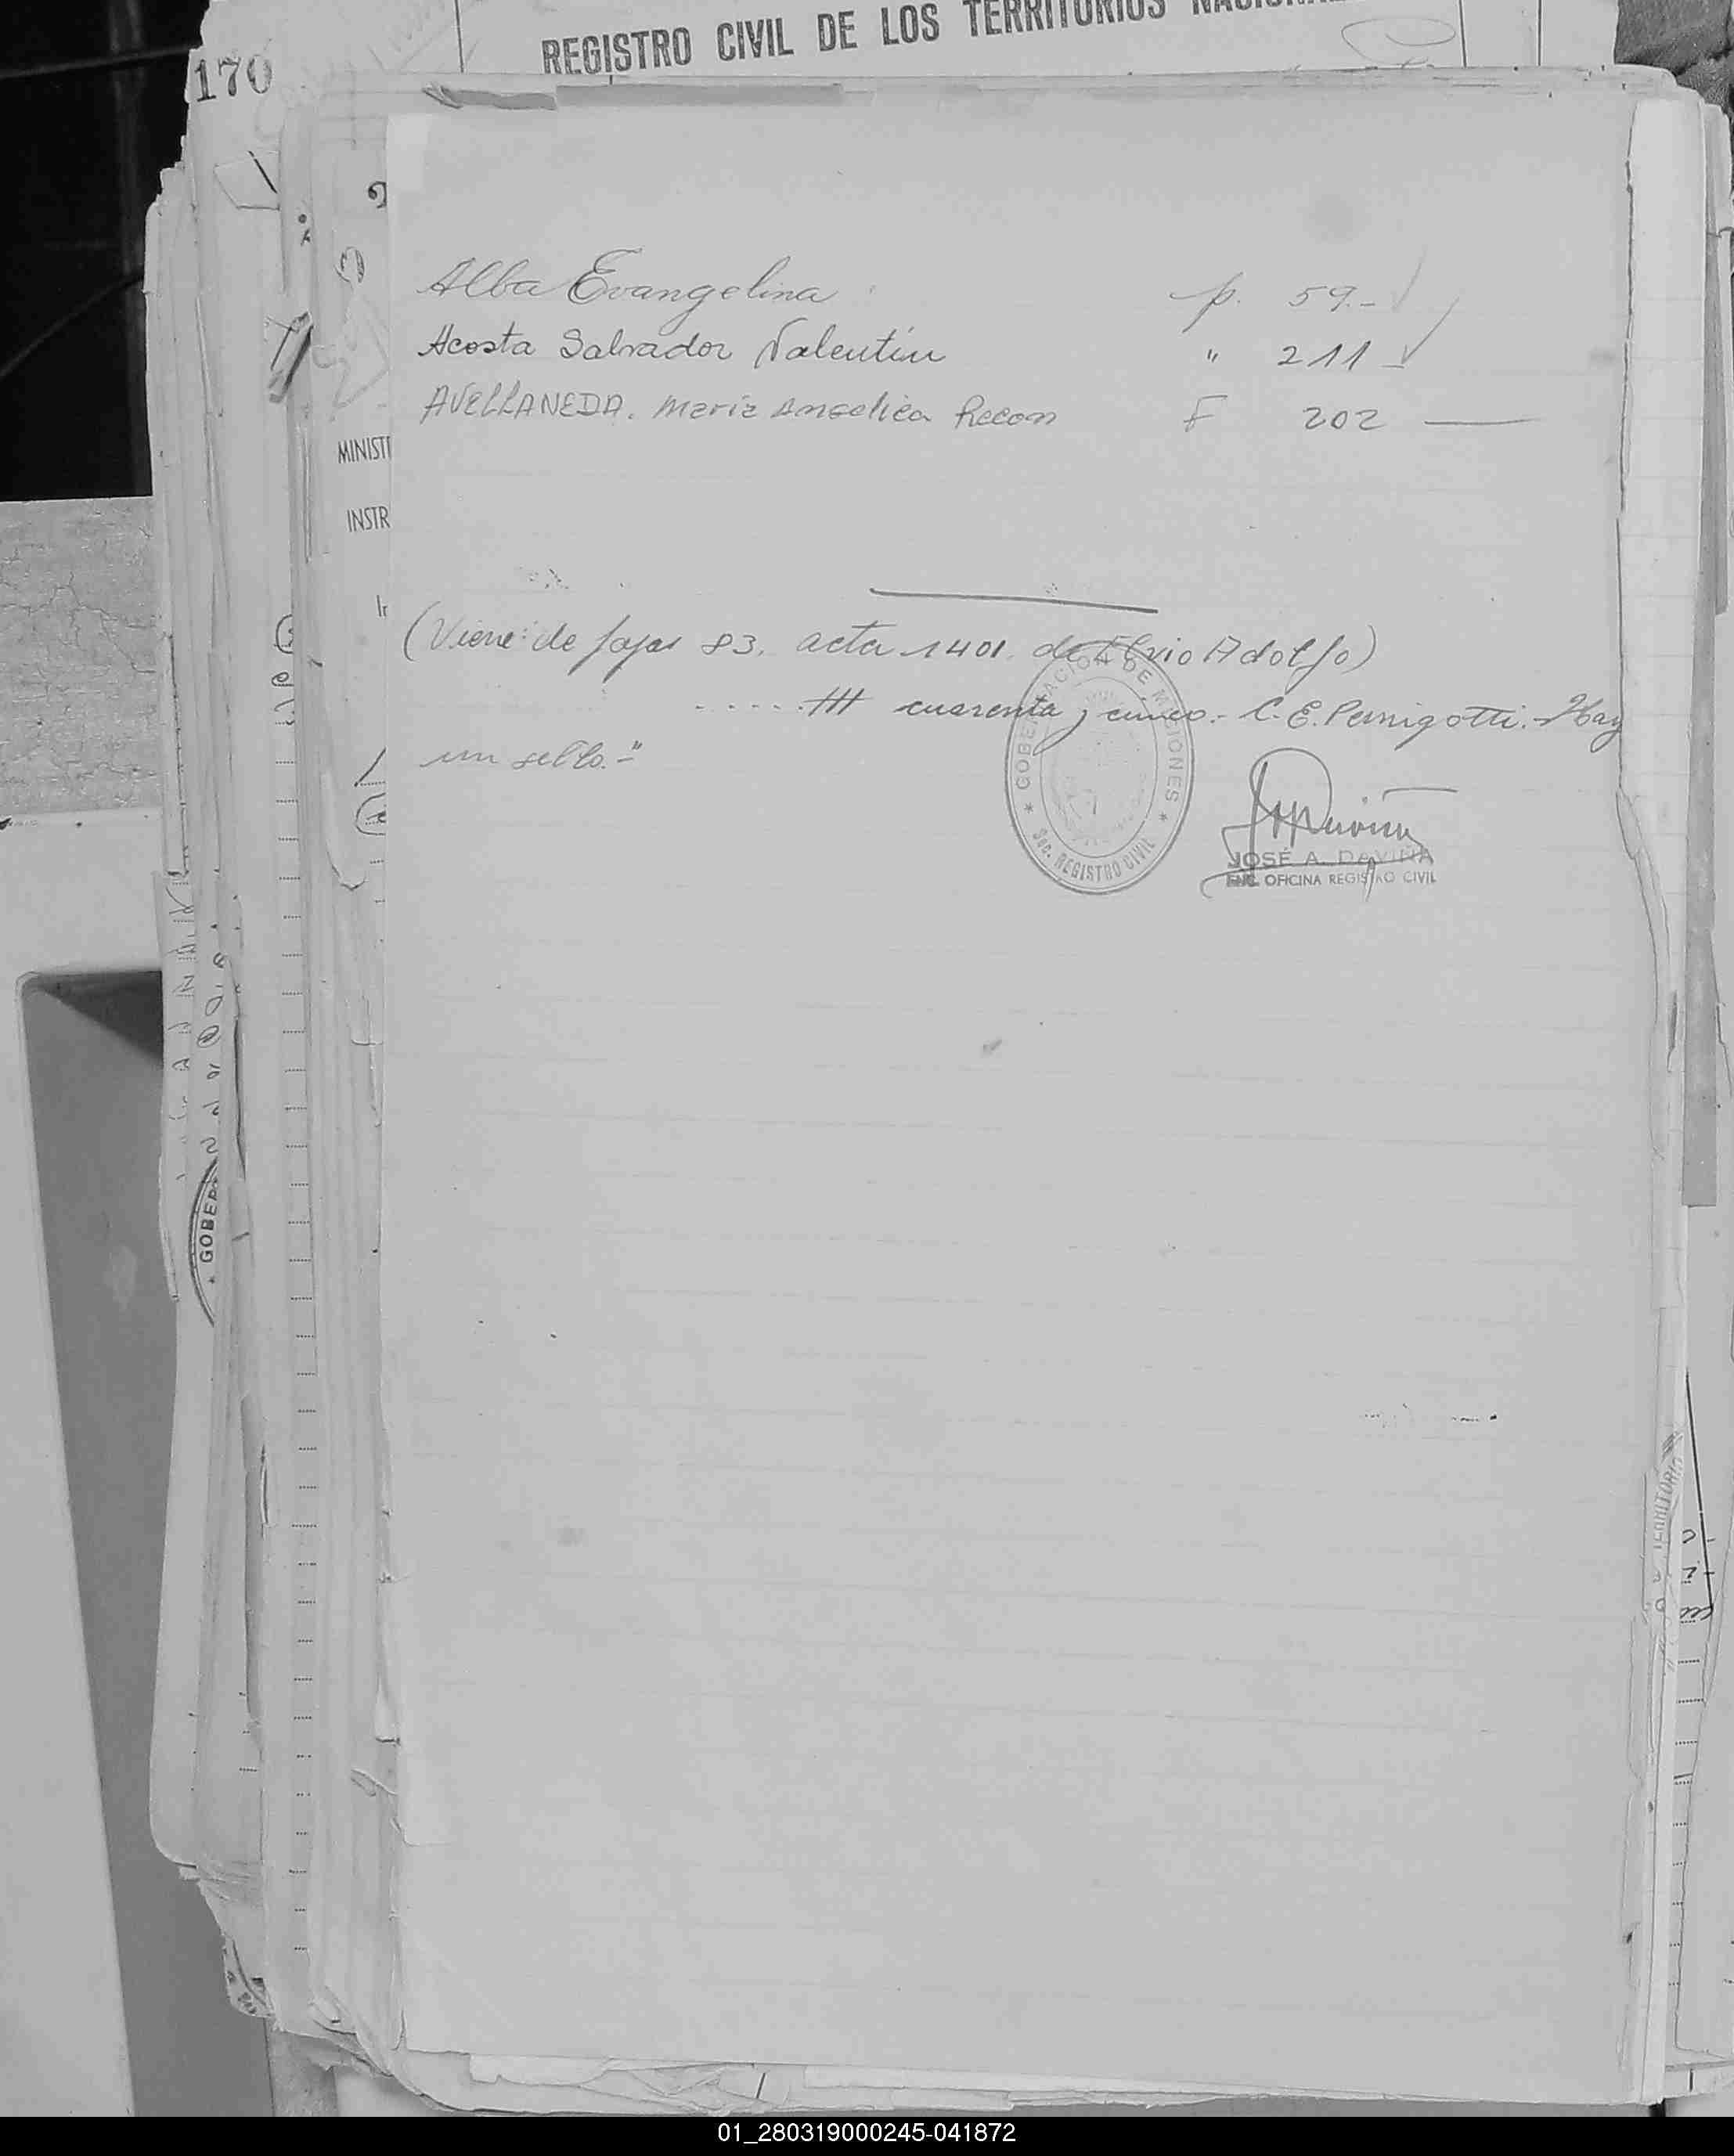 REGISTRO CIVIL DE LOS TERRITORIOS
170
Alba Evangelina p. 59.-
Acosta Salvador Valentin " 211 -
AVELLANEDA. Maria Angelica Recon F 202
MINIST
INSTR
(Viene de fojas 83. acta 1401. de Elvio Adolfo)
..... /// cuarenta y cinco.- C. E. Pernigotti.- Hay
un sello.-"
* GOBERNACION DE MISIONES *
Sec. REGISTRO CIVIL
JOSÉ A. DAVIÑA
ENC. OFICINA REGISTRO CIVIL
* GOBER
TERRITORIO
01_280319000245-041872